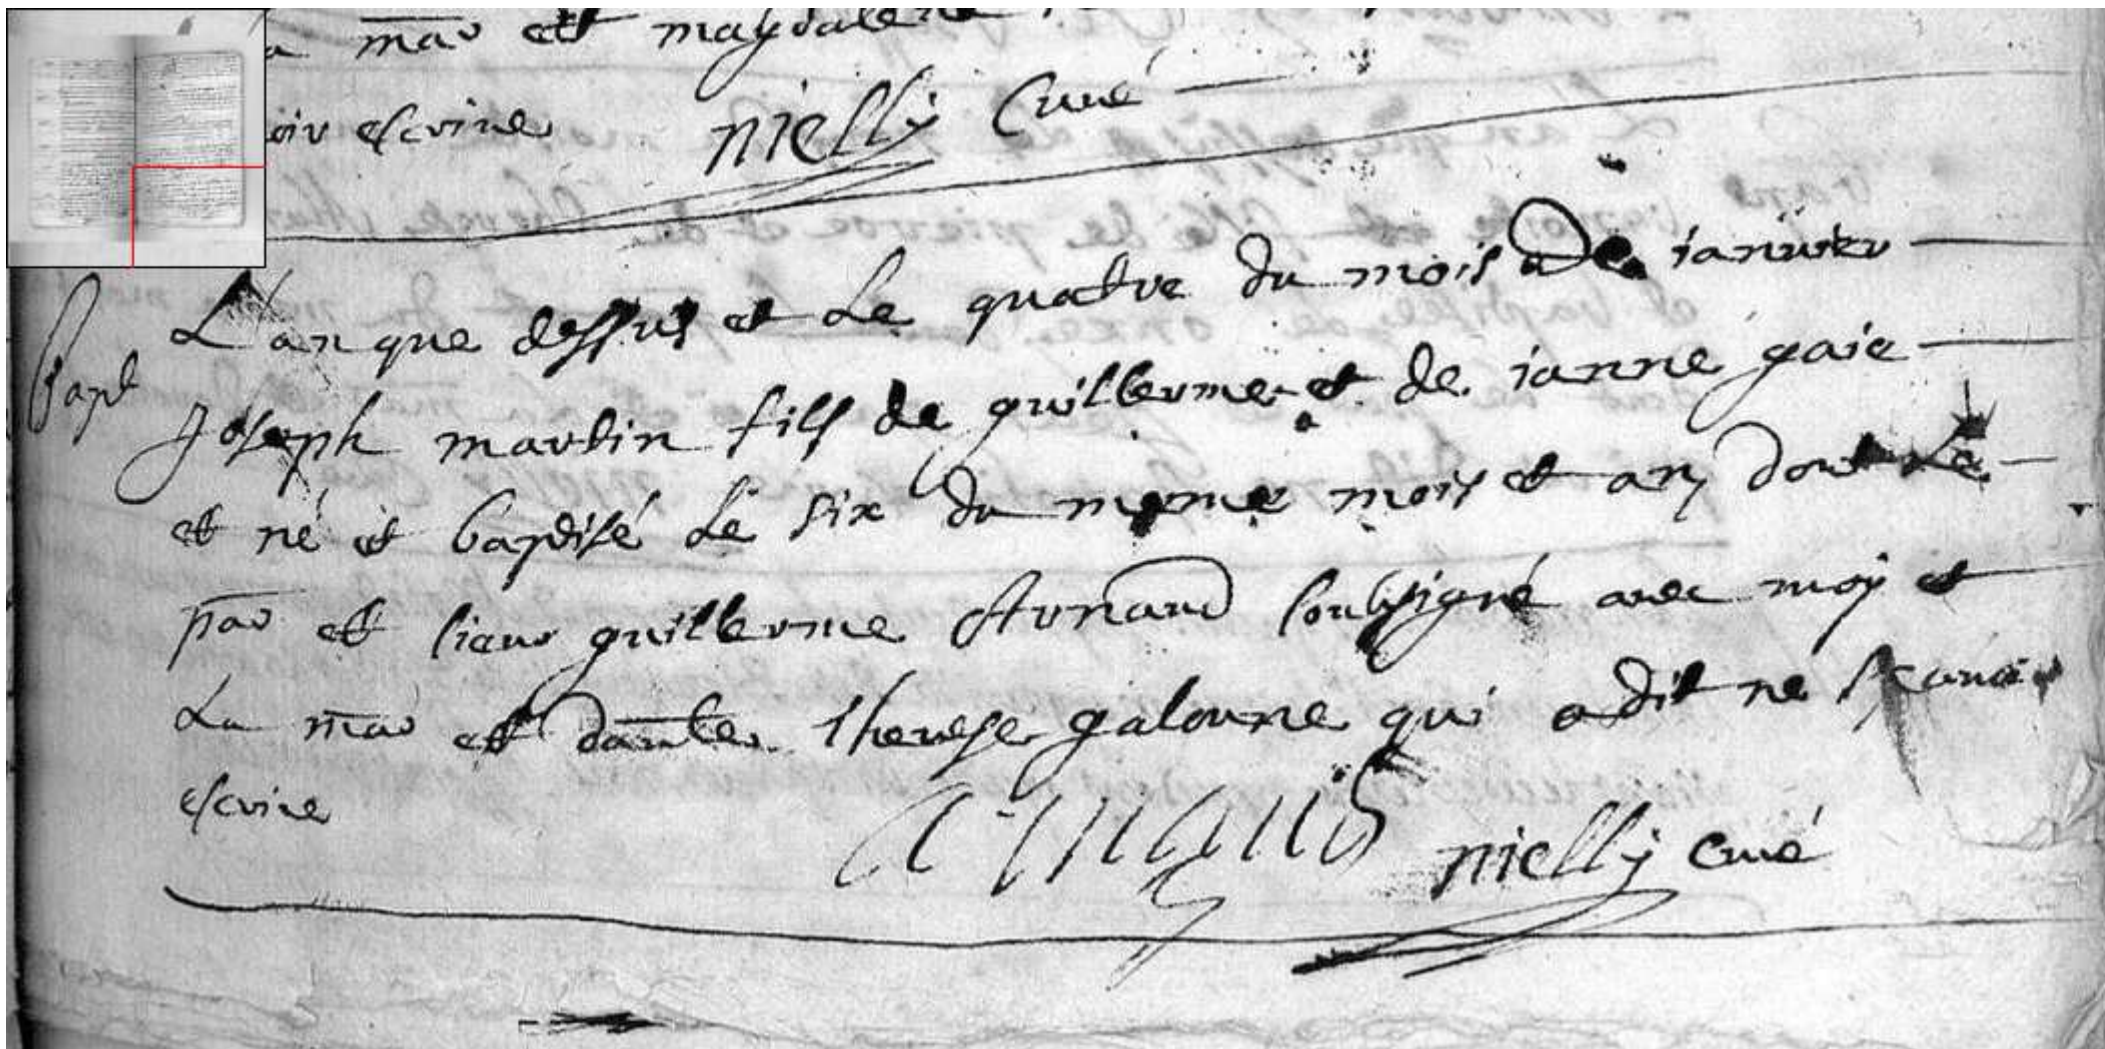 a mar est magdalene
oir escrire nielly Curé
Bapt
L'an que dessus et Le quatre du mois de ianvier
Joseph martin fils de guillerme et de ianne gaie
est né et baptisé Le six du meme mois et an dont Le
par est sieur guillerme Arnaud soubsigné avec moy et
La mar est damlle therese galonne qui a dit ne scavoir
escrire
arnaud nielly curé